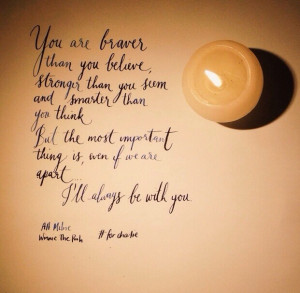 You are braver
than you believe,
stronger than you seem
and smarter than
you think
But the most important
thing is, even if we are
apart....
I'll always be with you
AA Milne
Winnie The Pooh
# for charlie